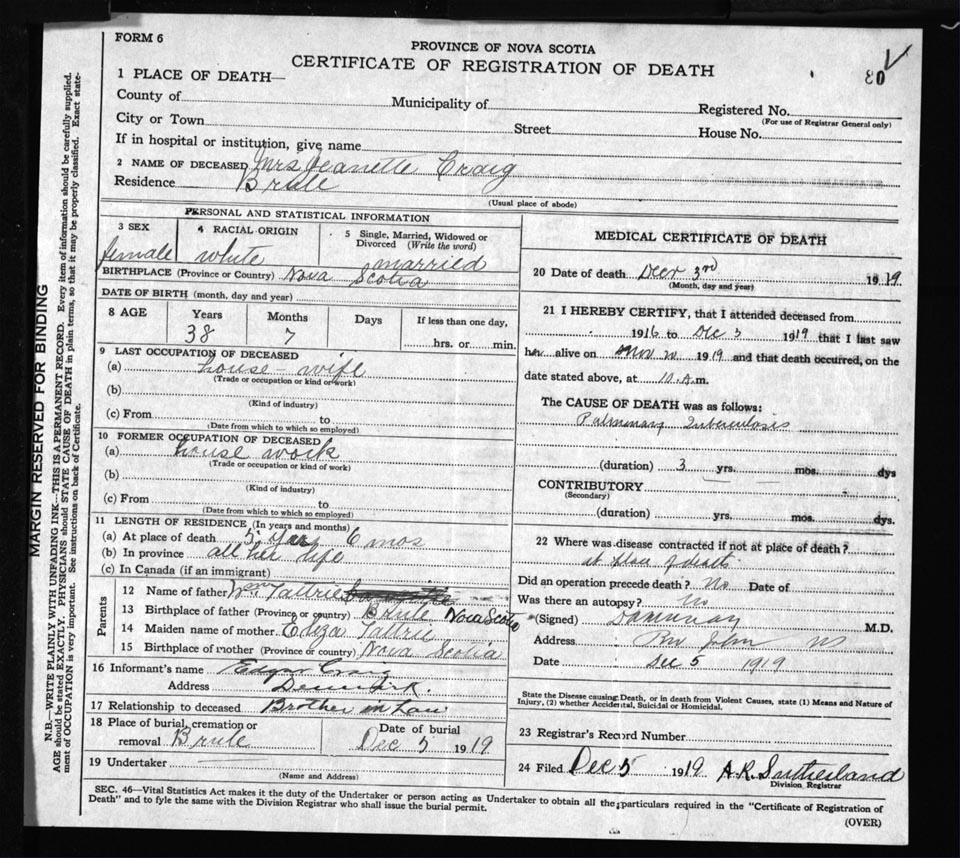 FORM 6
PROVINCE OF NOVA SCOTIA
CERTIFICATE OF REGISTRATION OF DEATH
80
1 PLACE OF DEATH—
County of
Municipality of
Registered No.
(For use of Registrar General only)
City or Town
Street
House No.
If in hospital or institution, give name
2 NAME OF DECEASED Mrs Jeanette Craig
Residence Brule
(Usual place of abode)
PERSONAL AND STATISTICAL INFORMATION
3 SEX
female
4 RACIAL ORIGIN
white
5 Single, Married, Widowed or Divorced (Write the word)
married
BIRTHPLACE (Province or Country) Nova Scotia
DATE OF BIRTH (month, day and year)
8 AGE
Years
38
Months
7
Days
If less than one day,
hrs. or min.
9 LAST OCCUPATION OF DECEASED
(a) house-wife
(Trade or occupation or kind of work)
(b)
(Kind of industry)
(c) From to
(Date from which to which so employed)
10 FORMER OCCUPATION OF DECEASED
(a) house work
(Trade or occupation or kind of work)
(b)
(Kind of industry)
(c) From to
(Date from which to which so employed)
11 LENGTH OF RESIDENCE (In years and months)
(a) At place of death 5 years 6 mos
(b) In province all her life
(c) In Canada (if an immigrant)
Parents
12 Name of father Wm Tattrie
13 Birthplace of father (Province or country) Brule Nova Scotia
14 Maiden name of mother Eliza Tattrie
15 Birthplace of mother (Province or country) Nova Scotia
16 Informant's name Edgar Craig
Address Denmark.
17 Relationship to deceased Brother in Law
18 Place of burial, cremation or removal Brule
Date of burial
Dec 5 1919
19 Undertaker
(Name and Address)
MEDICAL CERTIFICATE OF DEATH
20 Date of death Decr 3rd 1919
(Month, day and year)
21 I HEREBY CERTIFY, that I attended deceased from
1916 to Dec 3 1919 that I last saw
her alive on Nov 1919 and that death occurred, on the
date stated above, at 10 A.m.
The CAUSE OF DEATH was as follows:
Pulmonary Tuberculosis
(duration) 3 yrs. mos. dys
CONTRIBUTORY
(Secondary)
(duration) yrs. mos. dys.
22 Where was disease contracted if not at place of death?
at place of death
Did an operation precede death? No Date of
Was there an autopsy? No
(Signed) M.D.
Address River John NS
Date Dec 5 1919
State the Disease causing Death, or in death from Violent Causes, state (1) Means and Nature of
Injury, (2) whether Accidental, Suicidal or Homicidal.
23 Registrar's Record Number
24 Filed Dec 5 1919 A.R. Sutherland
Division Registrar
SEC. 46—Vital Statistics Act makes it the duty of the Undertaker or person acting as Undertaker to obtain all the particulars required in the "Certificate of Registration of
Death" and to fyle the same with the Division Registrar who shall issue the burial permit.
(OVER)
MARGIN RESERVED FOR BINDING
N.B.—WRITE PLAINLY WITH UNFADING INK—THIS IS A PERMANENT RECORD. Every item of information should be carefully supplied.
AGE should be stated EXACTLY. PHYSICIANS should STATE CAUSE OF DEATH in plain terms, so that it may be properly classified. Exact state-
ment of OCCUPATION is very important. See instructions on back of Certificate.